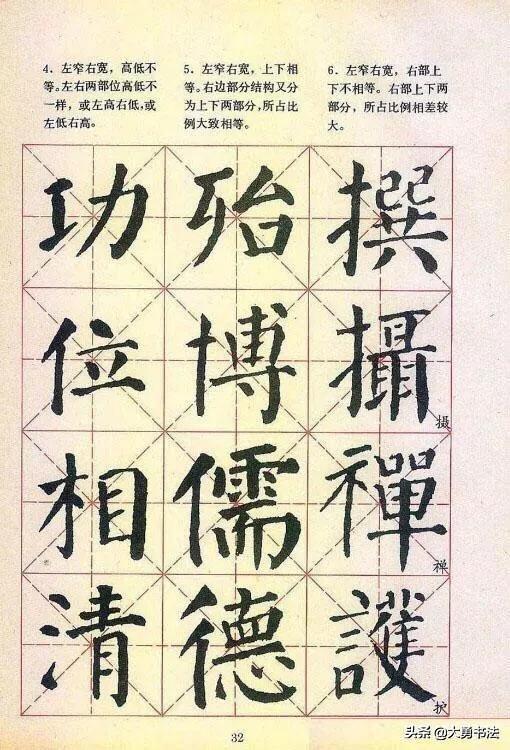 4．左窄右宽，高低不
等。左右两部位高低不
一样，或左高右低，或
左低右高。
5．左窄右宽，上下相
等。右边部分结构又分
为上下两部分，所占比
例大致相等。
6．左窄右宽，右部上
下不相等。右部上下两
部分，所占比例相差较
大。
功 殆 撰
位 博 攝
摄
相 儒 禪
禅
清 德 護
护
32
头条 @大勇书法